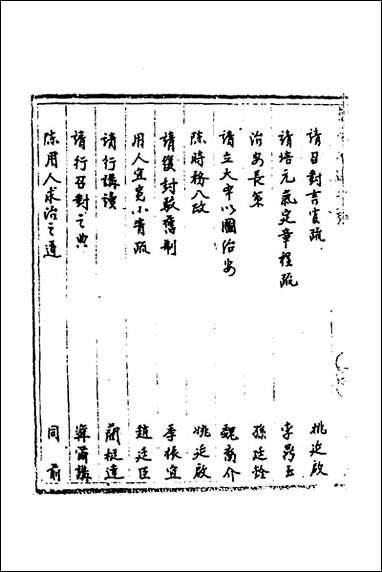 請召對言官疏　姚延啟
請培元氣定章程疏　李昌五
治安長策　孫廷銓
請立大宰以圖治安　魏裔介
陳時務八政　姚延啟
請復封駁舊制　季振宜
用人宜寬小眚疏　趙廷臣
請行講讀　藺挺達
請行召對之典　
陳用人求治之道　同前